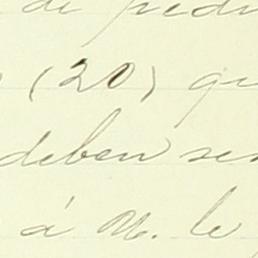 de pedr
(20) qu
deben ser
á M. le